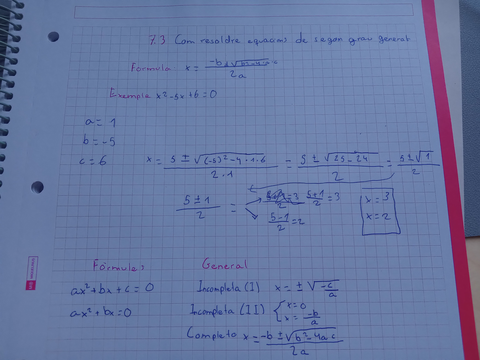 7.3 Com resoldre equacions de segon grau general
Fórmula x = (-b ± √(b²-4ac))/2a
Exemple x²-5x+6=0
a = 1
b = -5
c = 6
x = (5 ± √((-5)²-4·1·6))/(2·1) = (5 ± √(25-24))/2 = (5 ± √1)/2
(5 ± 1)/2 = (5+1)/2 = 3
(5-1)/2 = 2
x = 3
x = 2
Fórmules General
ax²+bx+c=0 Incompleta (I) x = ± √(-c/a)
ax²+bx=0 Incompleta (II) x=0
x = -b/a
Completo x = (-b ± √(b²-4a·c))/2a